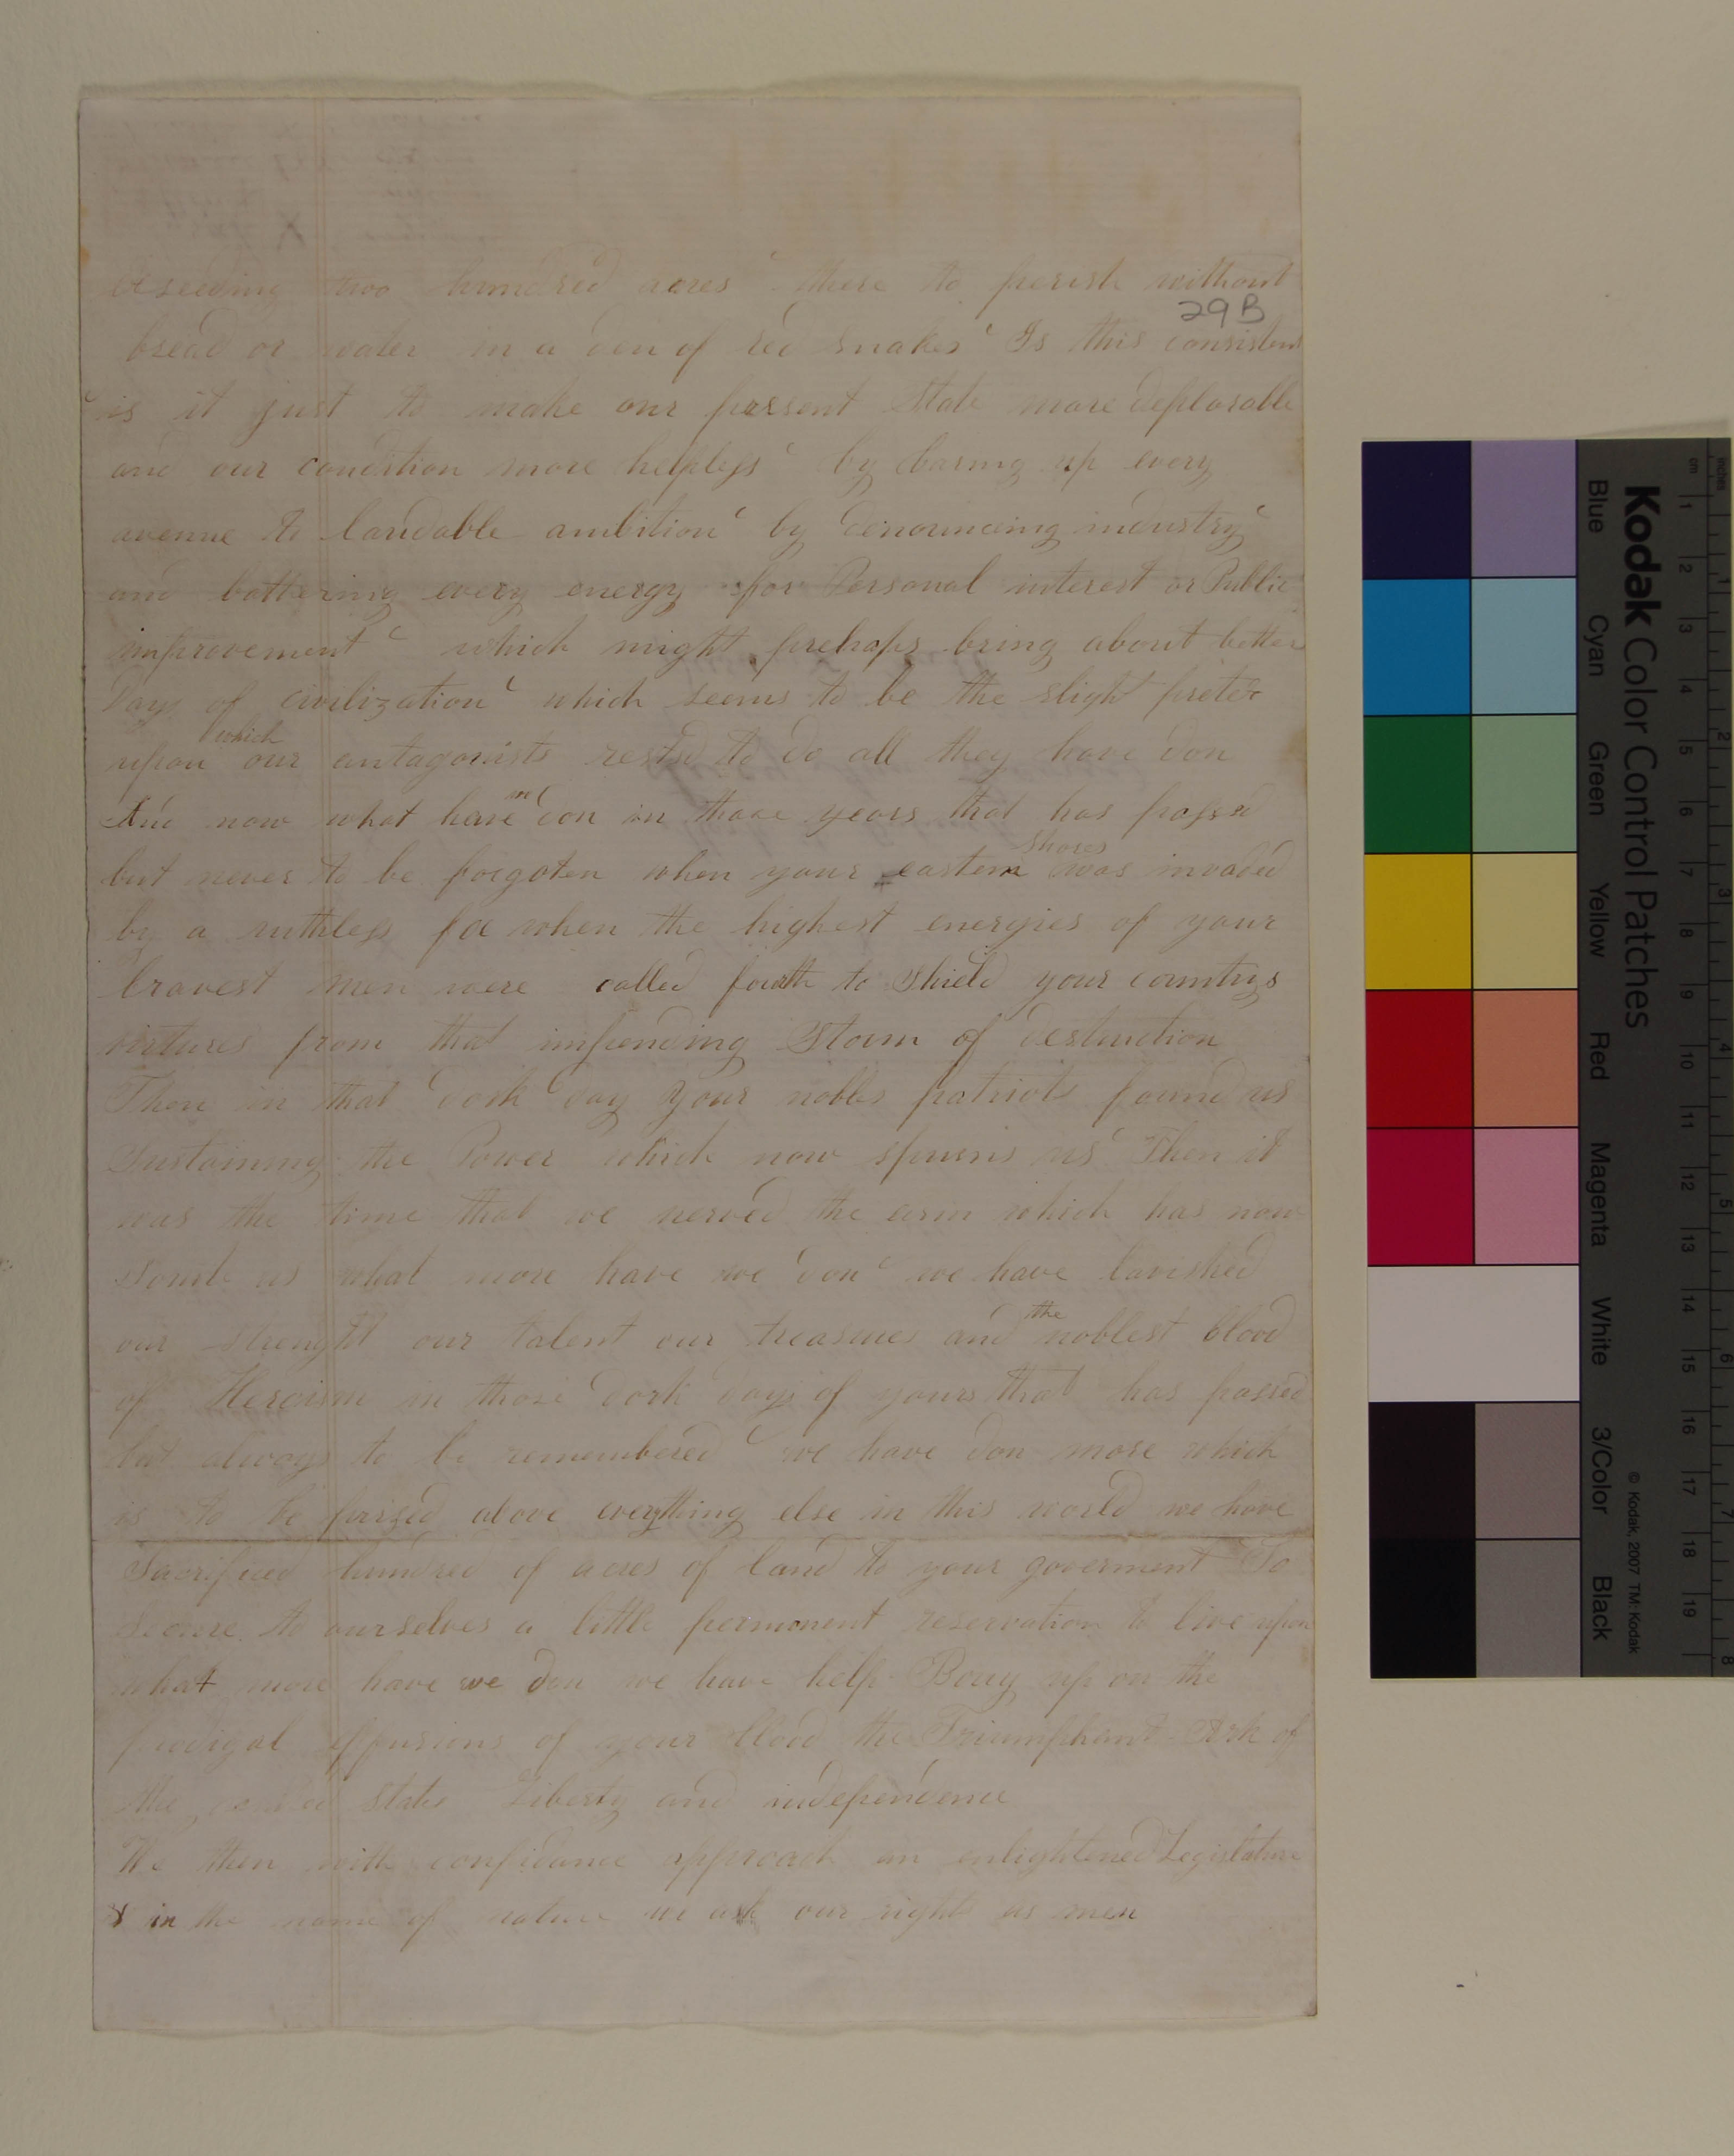 exseeding two hundred acres there to perish without
29B
bread or water in a den of red snakes Is this consistent
is it just to make our pressent State more deplorable
and our condition more helpless by baring up every
avenue to laudable ambition by denouncing industry
and battering every energy for Personal interest or Public
improvement which might prehaps bring about better
Days of civilization which seems to be the slight
which
upon our antagonists rested to do all they have don
we
And now what have don in those years that has passed
shores
but never to be forgoten when your eastern was invaded
by a ruthless foe when the highest energies of your
bravest men were called fourth to Shield your countrys
virtures from that impending Storm of destruction
Then in that dark day your nobles patriots found us
Sustaining the Power which now spurns us Then it
was the time that we nerved the arm which has now
us what more have we don we have lavished
the
our strenght our talent our treasures and noblest blood
of Heroism in those dark days of yours that has passed
but always to be remembered we have don more which
is to be prized above everything else in this world we have
Sacrificed hundred of acres of land to your goverment To
Secure to ourselves a little permonent reservation to live upon
what more have we don we have help Bouy up on the
prodigal effusions of your blood the Triumphant Ark of
the united States Liberty and independence
We then with confidance approach an enlightened Legislature
& in the name of nature we ask our rights as men
Kodak Color Control Patches
Blue Cyan Green Yellow Red Magenta White 3/Color Black
© Kodak, 2007 TM: Kodak
inches 1 2 3 4 5 6 7 8
cm 1 2 3 4 5 6 7 8 9 10 11 12 13 14 15 16 17 18 19